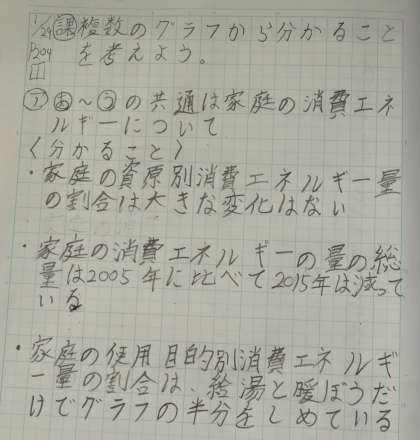 1/29 課 複数のグラフから分かること
P204 を考えよう。
ア あ～うの共通は家庭の消費エネ
ルギーについて
〈分かること〉
・家庭の資原別消費エネルギー量
の割合は大きな変化はない
・家庭の消費エネルギーの量の総
量は2005年に比べて2015年は減って
いる
・家庭の使用目的別消費エネルギ
ー量の割合は、給湯と暖ぼうだ
けでグラフの半分をしめている